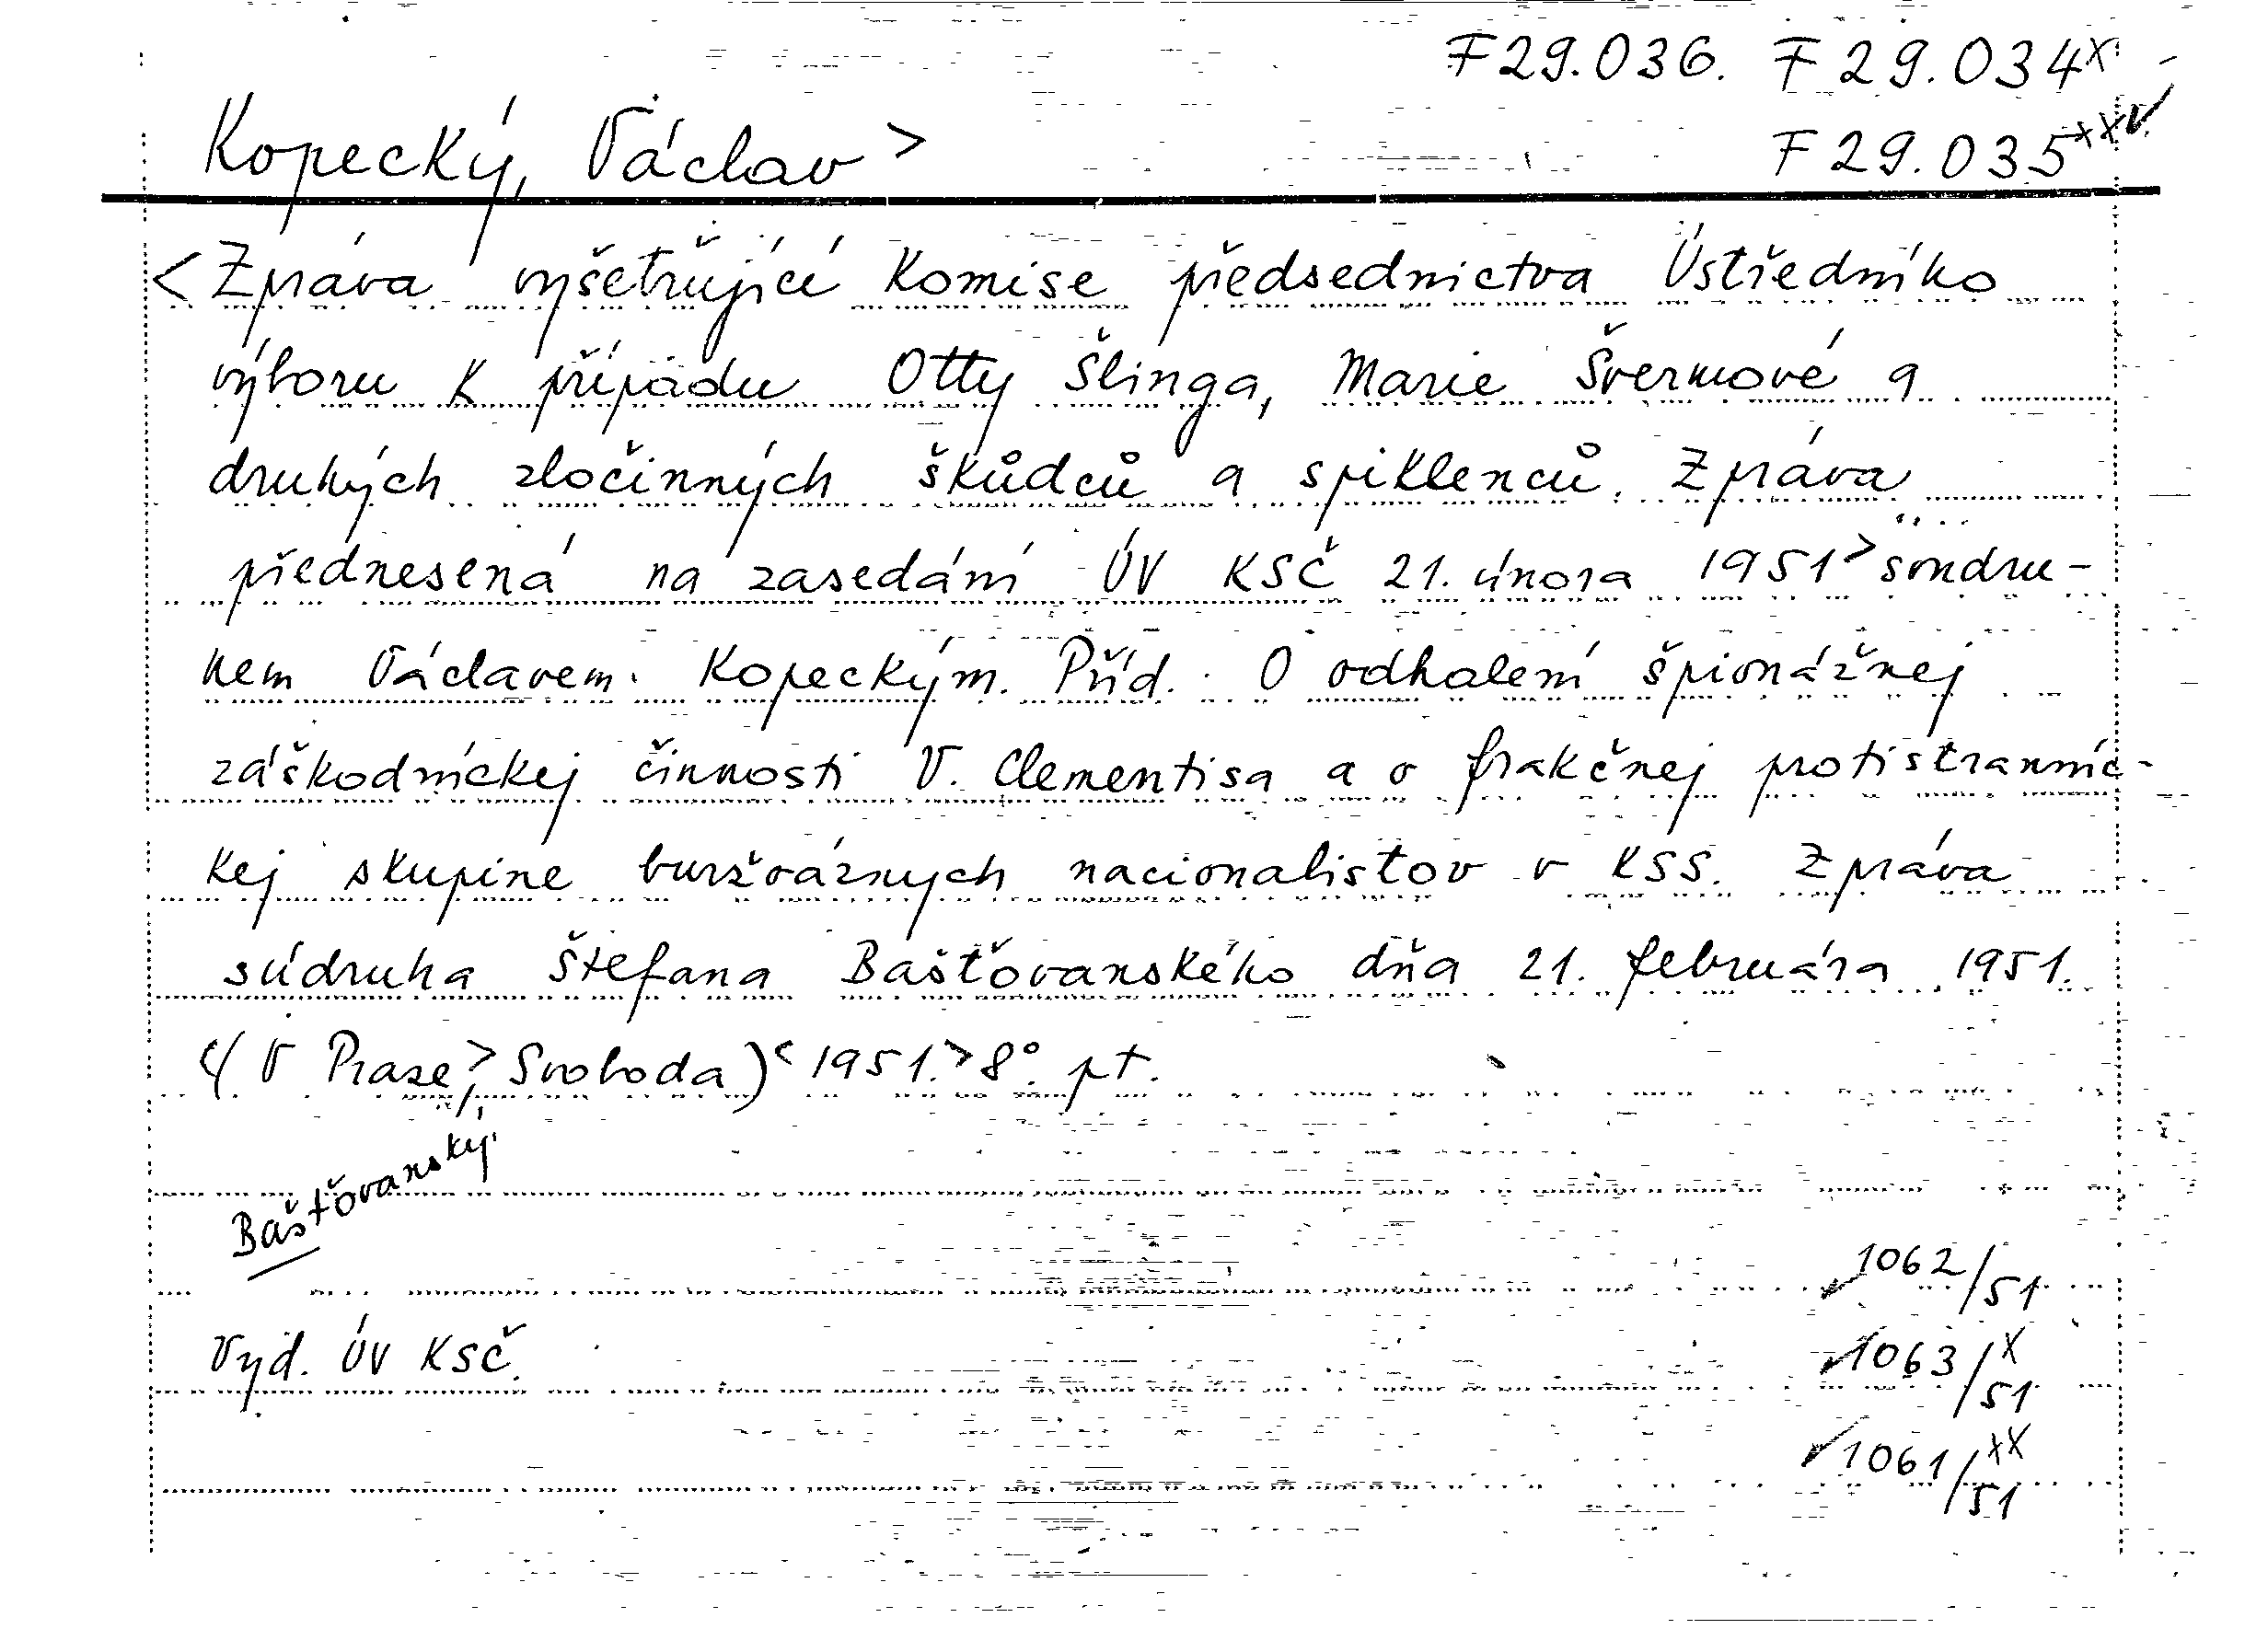 F 29.036. F 29.034x
Kopecký, Václav >
F 29.035xx v.
< Zpráva vyšetřující komise předsednictva Ústředního
výboru k případu Otty Šlinga, Marie Švermové a
druhých zločinných škůdců a spiklenců. Zpráva
přednesená na zasedání ÚV KSČ 21. února 1951 > soudru-
hem Václavem Kopeckým. Příd. O odhalení špionážnej
záškodníckej činnosti V. Clementisa a o frakčnej protistraníc-
kej skupine buržoáznych nacionalistov v KSS. Zpráva
súdruha Štefana Bašťovanského dňa 21. februára 1951.
<( V Praze >, Svoboda) < 1951. > 8°. pt.
Bašťovanský
1062/51
Vyd. ÚV KSČ.
1063/51 x
1061/51 xx